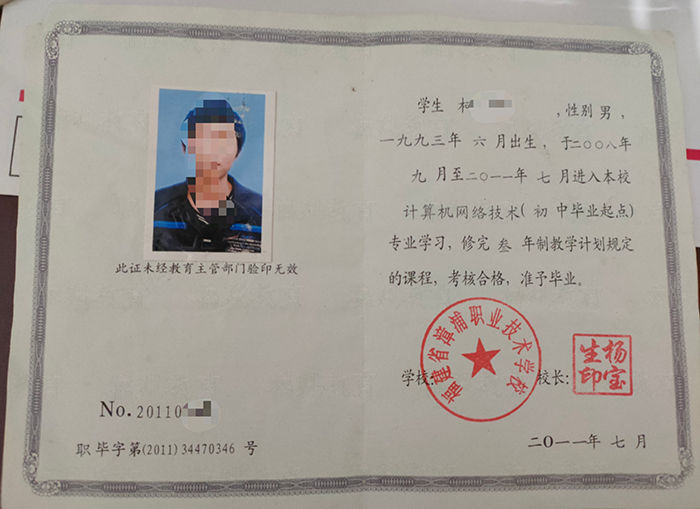 此证未经教育主管部门验印无效
No. 20110
职毕字第(2011) 34470346 号
学生 ，性别 男 ，
一九九三年 六 月出生，于二〇〇八年
九 月至二〇一一年 七 月进入本校
计算机网络技术( 初 中毕业起点)
专业学习，修完 叁 年制教学计划规定
的课程，考核合格，准予毕业。
福建省漳浦职业技术学校
学校：
校长：
杨宝生印
二〇一一年 七 月